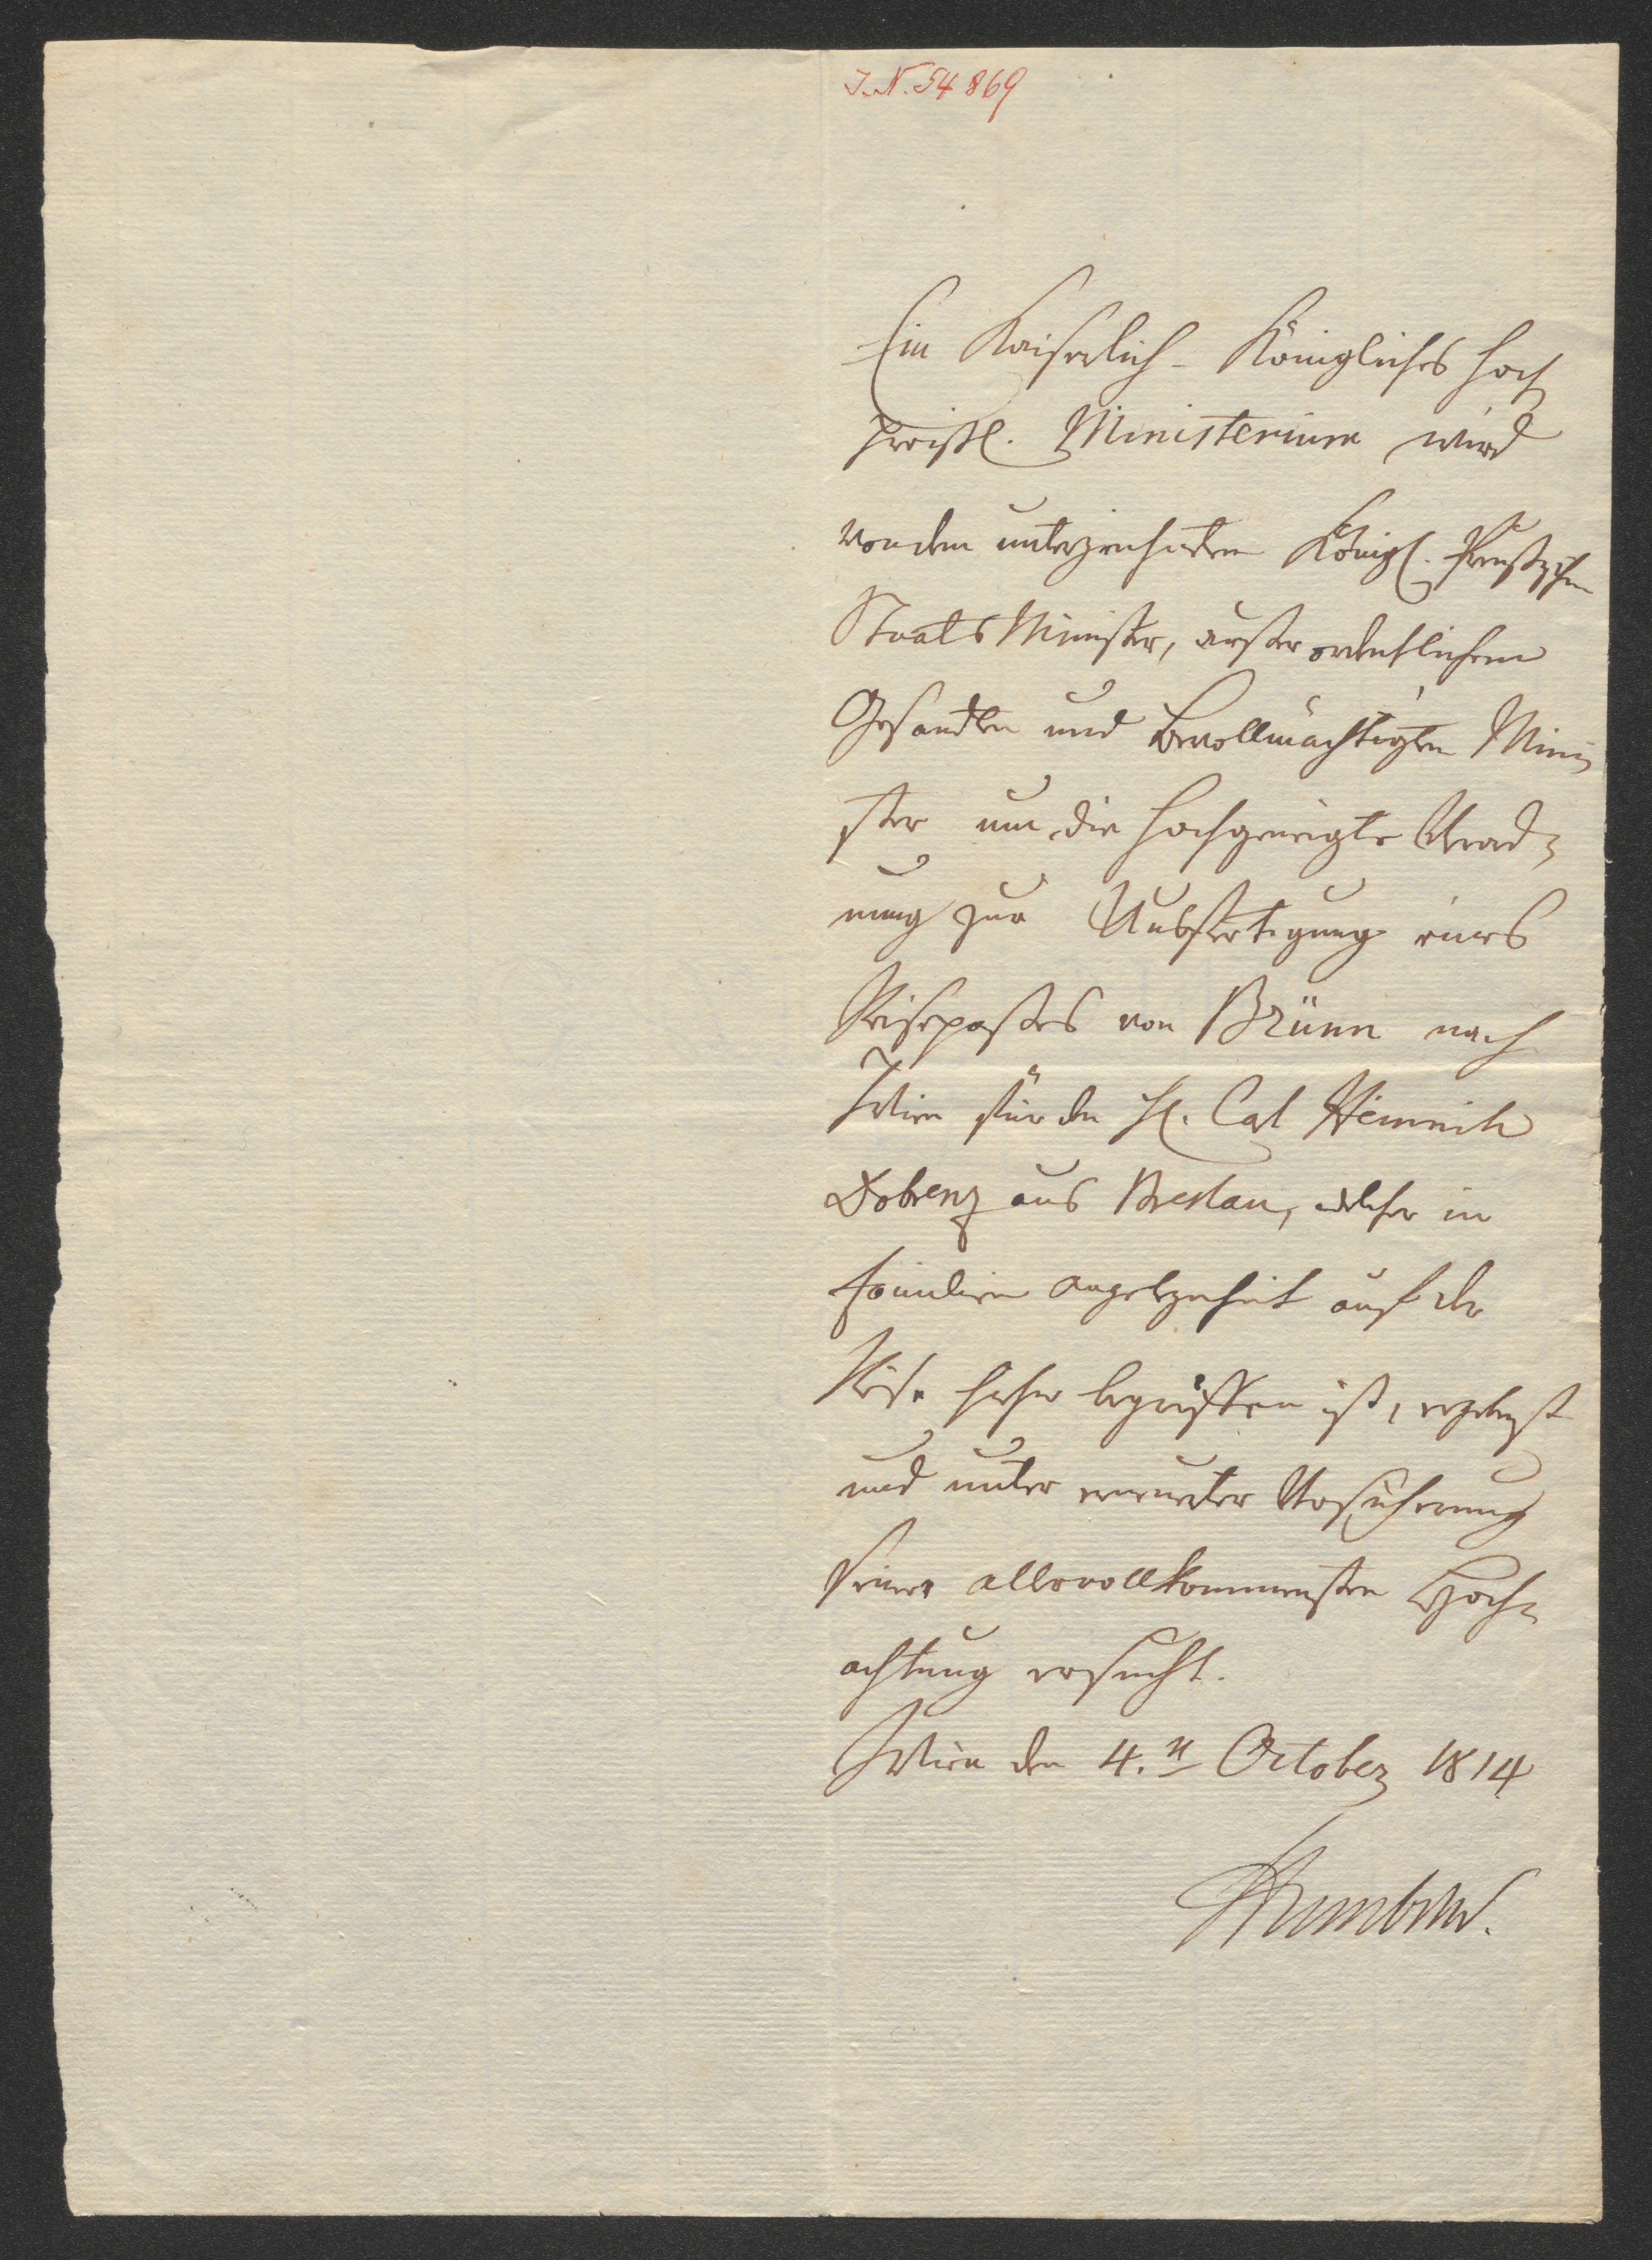 I.N. 54869
Ein Kaiserlich-Königliches hoch
preißl. Ministerium wird
von dem unterzeichneten Königl. Preußischen
Staats Minister, außerordentlichem
Gesandten und bevollmächtigten Mini-
ster um die hochgeneigte Verord-
nung zur Ausfertigung eines
Reisepasses von Brünn nach
Wien für den H. Carl Heinrich
Dobrenz aus Breslau, welcher in
Familien Angelegenheit auf der
Reise hieher begriffen ist, ergebenst
und unter erneuerter Versicherung
seiner allervollkommensten Hoch-
achtung ersucht.
Wien den 4.n October 1814
Humboldt.